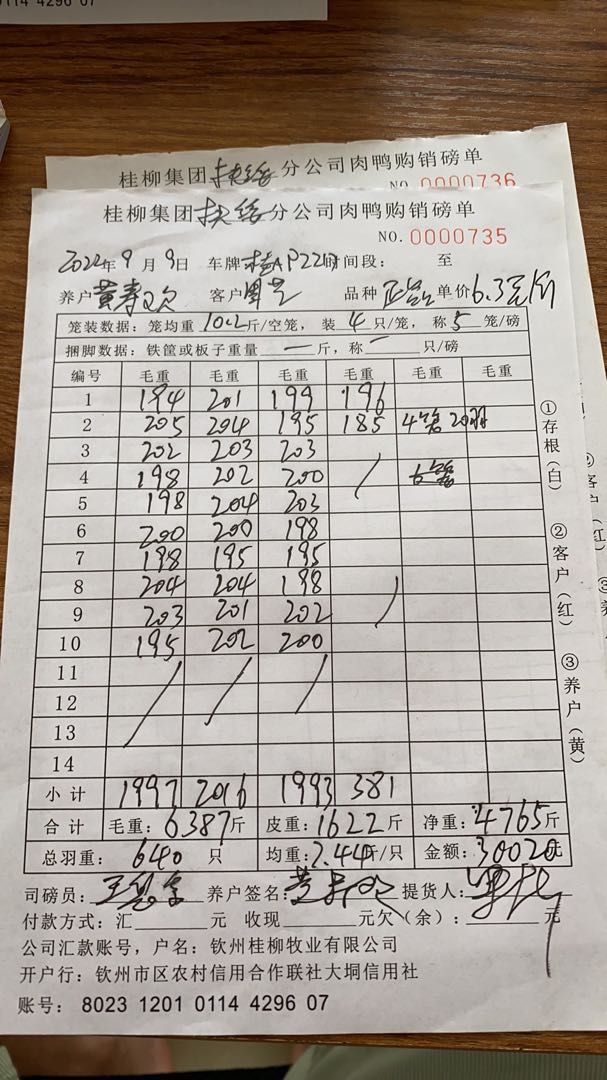 0114 4296 07
桂柳集团扶绥分公司肉鸭购销磅单
NO. 0000736
桂柳集团扶绥分公司肉鸭购销磅单
NO. 0000735
2022年9月9日 车牌桂AP221 时间段: 至
养户黄寿欢 客户 品种 单价6.3元/斤
笼装数据: 笼均重10.2斤/空笼, 装4只/笼, 称5笼/磅
捆脚数据: 铁筐或板子重量—斤, 称—只/磅
编号 毛重 毛重 毛重 毛重 毛重 毛重
1 194 201 199 196
2 205 204 195 185 4笼20羽
3 202 203 203
4 198 202 200
5 198 204 203
6 200 200 198
7 198 195 195
8 204 204 198
9 203 201 202
10 195 202 200
11
12
13
14
小计 1997 2016 1993 381
合计 毛重: 6387斤 皮重: 1622斤 净重: 4765斤
总羽重: 640只 均重: 7.44斤/只 金额: 30020元
司磅员: 养户签名: 提货人:
付款方式: 汇 元 收现 元欠(余): 元
公司汇款账号, 户名: 钦州桂柳牧业有限公司
开户行: 钦州市区农村信用合作联社大垌信用社
账号: 8023 1201 0114 4296 07
①存根(白)
②客户(红)
③养户(黄)